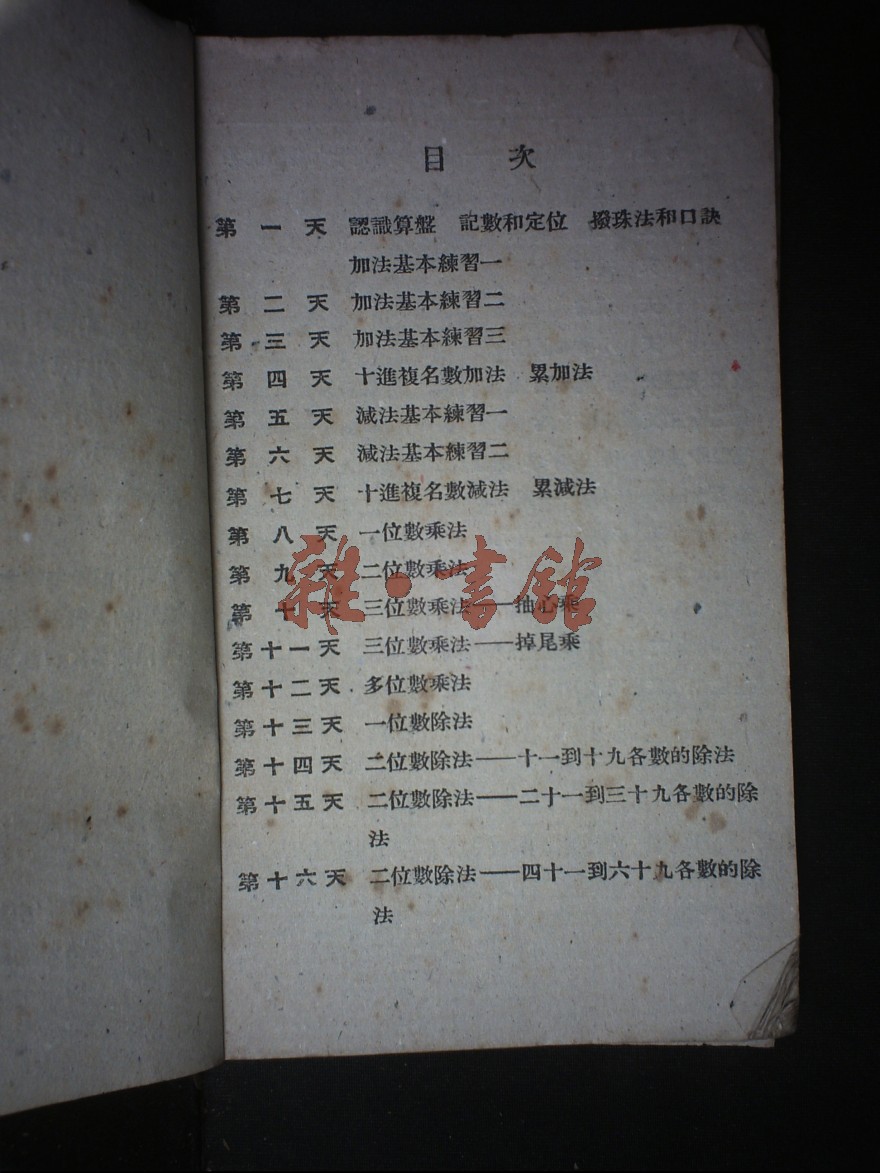 目 次
第一天 認識算盤 記數和定位 撥珠法和口訣
加法基本練習一
第二天 加法基本練習二
第三天 加法基本練習三
第四天 十進複名數加法 累加法
第五天 減法基本練習一
第六天 減法基本練習二
第七天 十進複名數減法 累減法
第八天 一位數乘法
第九天 二位數乘法
雜·書館
第十天 三位數乘法——抽心乘
第十一天 三位數乘法——掉尾乘
第十二天 多位數乘法
第十三天 一位數除法
第十四天 二位數除法——十一到十九各數的除法
第十五天 二位數除法——二十一到三十九各數的除
法
第十六天 二位數除法——四十一到六十九各數的除
法